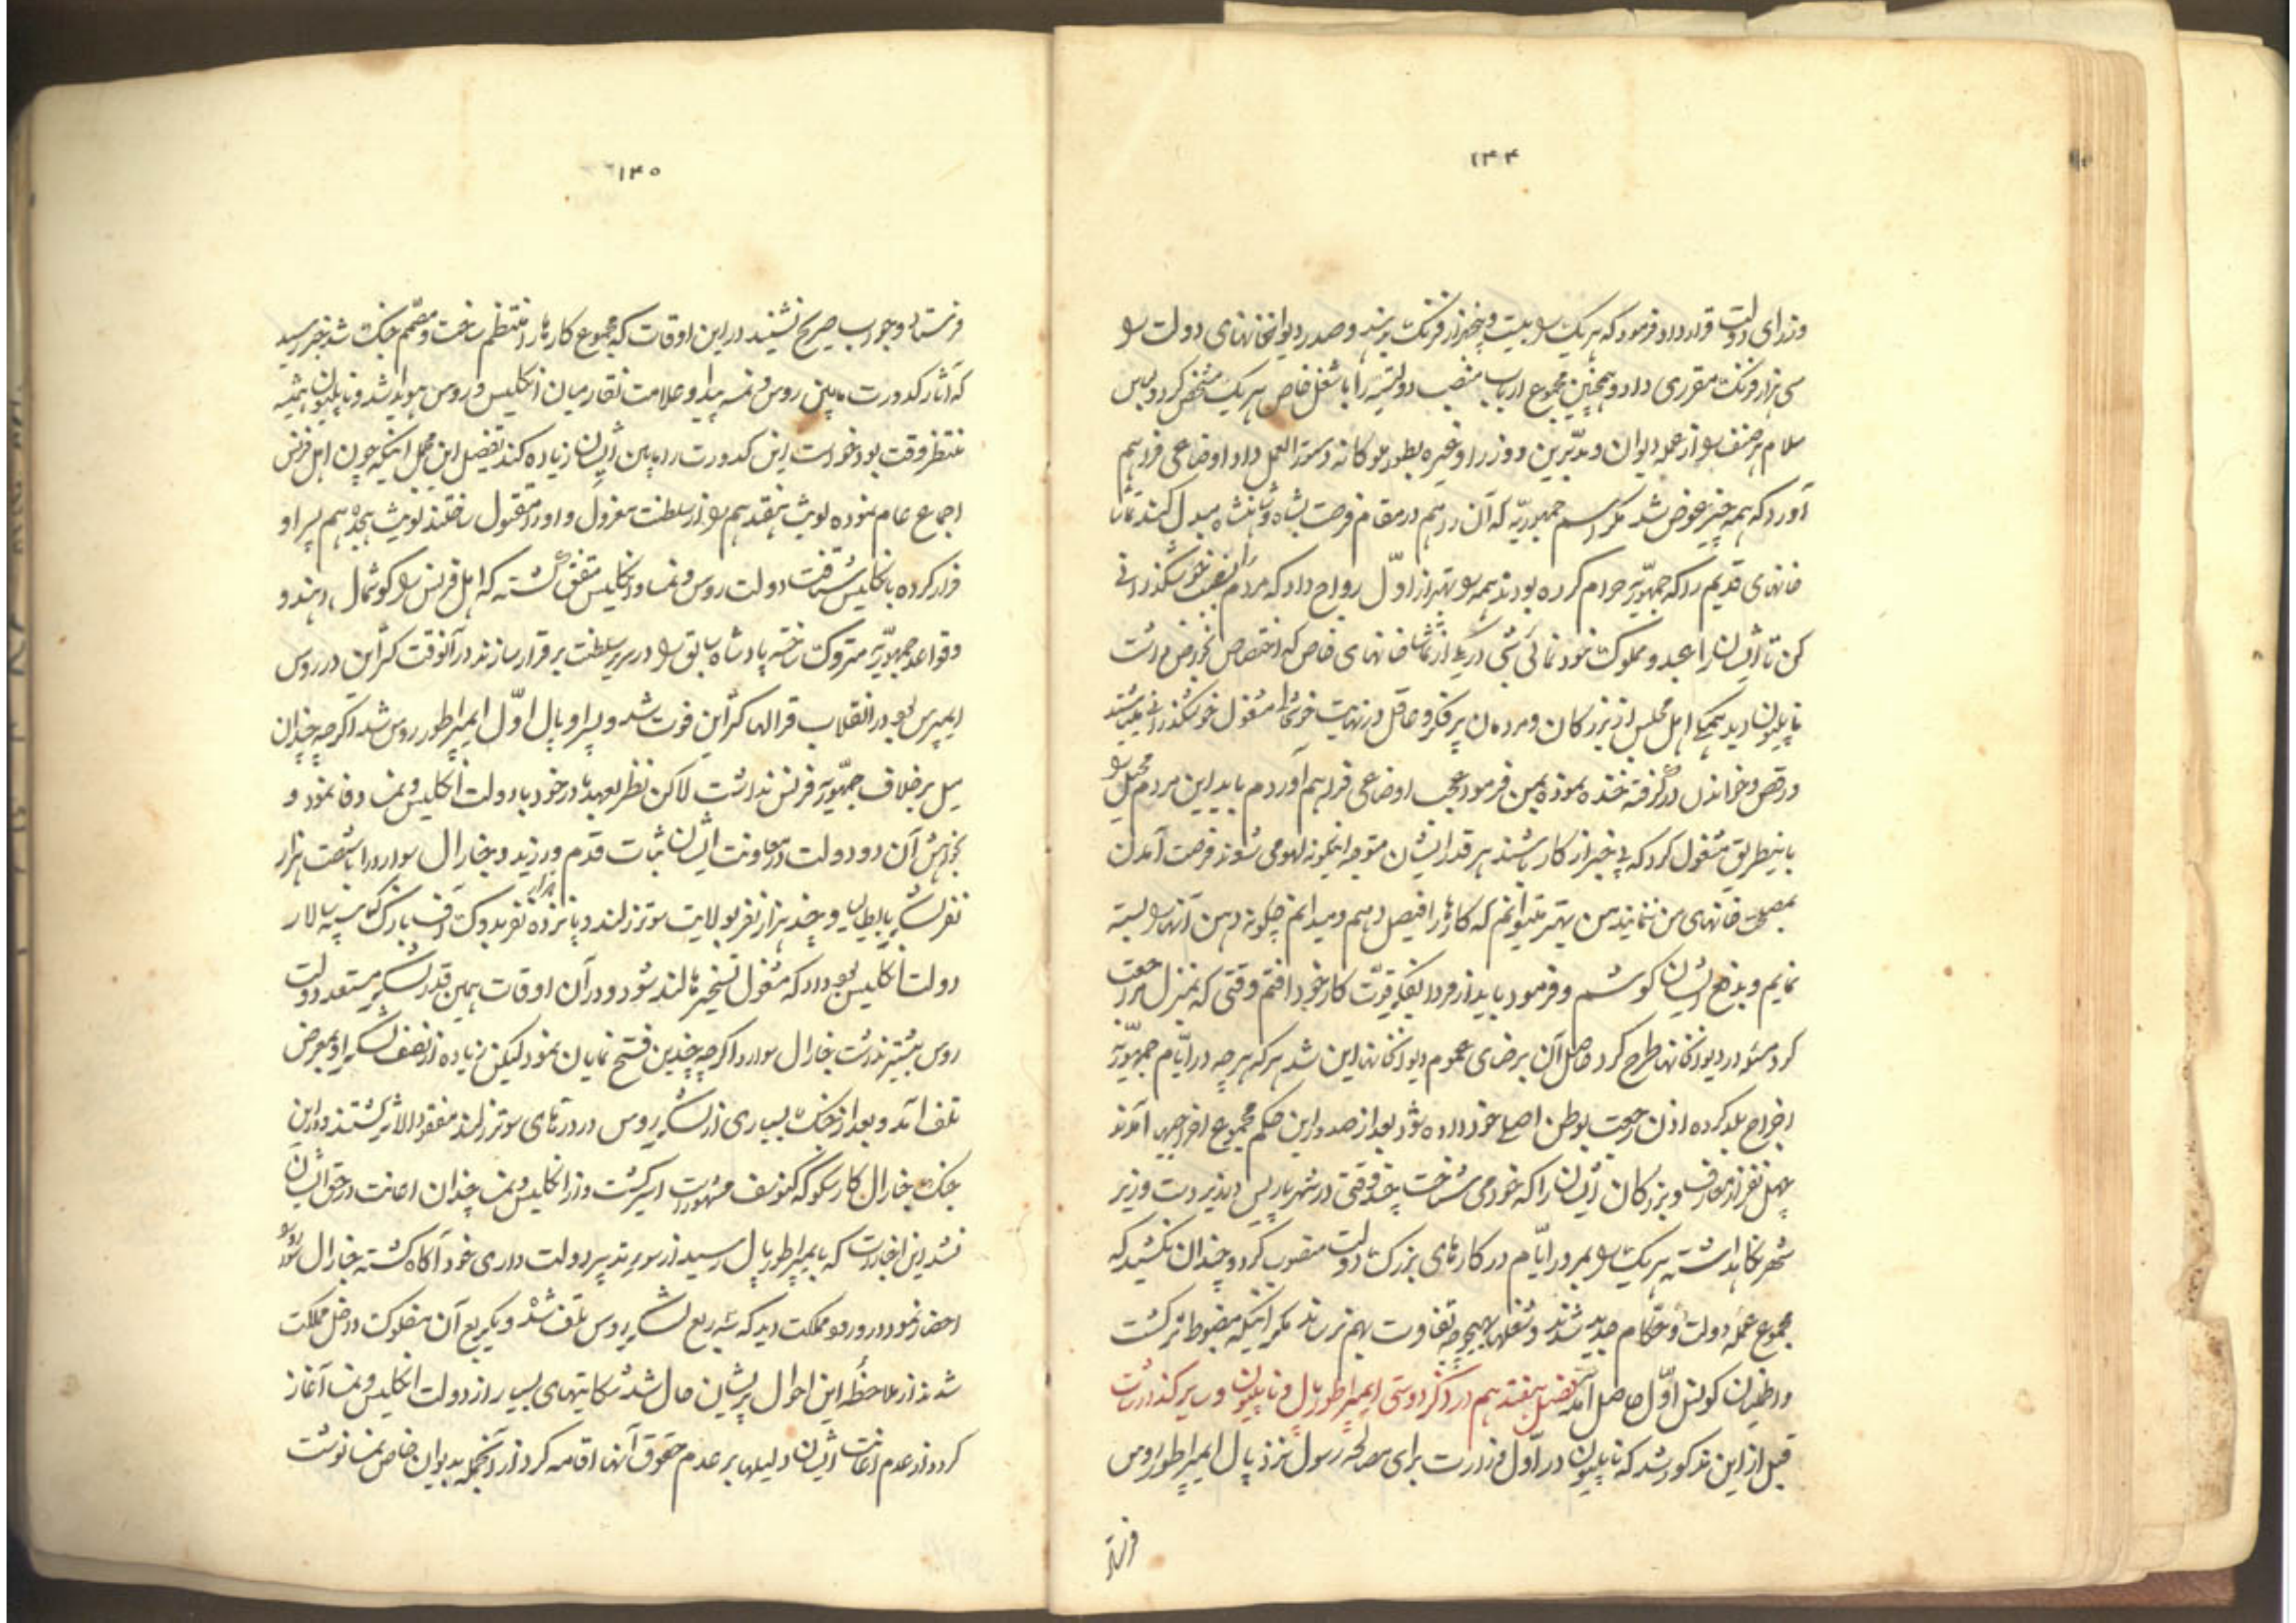 ۱۴۴
وزرای دولت قرارداد فرمود که هریک را بیست و پنجهزار فرنک برسد و صدر دیوانخانهای دولت را
سی هزار فرنک مقرری داد و همچنین مجموع ارباب منصب دولتیه را باشغل خاص هریک مشخص کرد و لباس
سلام هر صنف را از عمله دیوان و مدبّرین و وزرا و غیره بطور ملوکانه دستورالعمل داد و اوضاعی فراهم
آورد که همه چیز عوض شد مگر اسم جمهوریّه که آن را هم در مقام فرصت بشاه و شاهنشاه مبدل کند تماشا
خانهای قدیم را که جمهوریّه حرام کرده بودند همه را بهتر از اوّل رواج داد که مردم را بعیش و خوشگذرانی
کن تا ایشان را عبد و مملوک خود نمائی شبی در یکی از تماشاخانهای خاص که اختصاص بخواص داشت
ناپلیون دید همگی اهل مجلس از بزرگان و مردمان پرفکر و عاقل در نهایت مشغول خوشگذرانی میباشند
و رقص و خواندن در گرفته خنده نموده بمن فرمود عجب اوضاعی فراهم آوردم باید این مردم محیل را
باینطریق مشغول کرد که بی خبر از کار باشند هر قدر ایشان متوجه اینگونه لهو می شوند فرصت آمدن
بمصلحت خانهای من ننمایند من بهتر میتوانم که کارها را فیصل دهم و میدانم چگونه دهن آنها را بسته
نمایم و بدفع ایشان کوشم و فرمود باید از فردا بفکر قوّت کار خود افتم وقتی که بمنزل مراجعت
کرد مشورت در دیوانخانها طرح کرد حاصل آن برضای عموم دیوانخانها این شد هر که هرچه در ایّام جمهوریّه
اخراج بلد کرده اذن رجعت بوطن اصلی خود داده شود بعد از صدور این حکم مجموع اخراجیها آمدند
چهل نفر از معارف و بزرگان ایشان را که خود می شناخت چند وقتی در شهر پاریس دیدن وزیر
شهر نگاهداشته هریک را بمرور ایّام در کارهای بزرگ دولت منصوب کرد و چندان نکشید که
مجموع عمله دولت و حکام جدید شدند و شغلها بهیچوجه تفاوت بهم نرساند مگر اینکه مضبوط تر گشت
و اطمینان کونسل اوّل حاصل آمد فصل هفتدهم در ذکر دوستی ایمپراطور پال و ناپلیون و سایر گذارشات
قبل از این مذکور شد که ناپلیون در اوّل وزارت برای مصالحه رسول نزد پال ایمپراطور روس
فرستاد
۱۴۵
فرستاد و جواب صریح نشنید در این اوقات که مجموع کارها را منتظم ساخت و مصّمم جنک شد خبر رسید
که آثار کدورت مابین روس و نمسه پیدا و علامت نقار میان انکلیس و روس هویدا شد و ناپلیون همیشه
منتظر وقت بود خواست این کدورت را مابین ایشان زیاده کند تفصیل این مجمل اینکه چون اهل فرنس
اجماع عام نموده لویش هفتدهم را از سلطنت معزول و او را مقتول ساختند لویش هیجدهم پسر او
فرار کرده بانکلیس شتافت دولت روس و نمسا و انکلیس متفق گشته که اهل فرنس را کوشمال دهند و
و قواعد جمهوریّه متروک ساخته پادشاه سابق را در سریر سلطنت برقرار سازند در آنوقت کتراین در روس
ایمپرس بود در انقلاب قرالها کتراین فوت شد و پسر او پال اوّل ایمپراطور روس شد اگرچه چندان
میل برخلاف جمهّوریّه فرنس نداشت لاکن نظر بعهد مادر خود با دولت انکلیس و نمسا وفا نمود و
بخواهش آن دو دولت در معاونت ایشان ثبات قدم ورزید و جنارال سوارد را با شصت هزار
نفر لشکر بایطالیا و چند هزار نفر بولایت سوتزرلند و پانزده هزار نفر بدوک آف یارک که سپه سالار
دولت انکلیس بود داد که مشغول تسخیر هالند شود و در آن اوقات همین قدر لشکر مستعد دولت
روس بیشتر نداشت جنارال سوارد اگرچه چندین فتح نمایان نمود لیکن زیاده از نصف لشکر او بمعرض
تلف آمد و بعد از جنک بسیاری از لشکر روس در درّهای سوتزرلند مفقود الاثر گشتند و در این
جنک جنارال کارسکو که کنوزسف مشهور است اسیر گشت و از انکلیس و نمسا چندان اعانت در حق ایشان
نشد این اخبارات که بایمپراطور پال رسید از سوء تدبیر دولت داری خود آگاه گشته جنارال سوارد را
احضار نمود در ورود مملکت دید که سه ربع لشکر روس تلف شده و یکربع آن مفلوک داخل مملکت
شدند از ملاحظهٔ این احوال پریشان حال شد شکایتهای بسیار از دولت انکلیس و نمسا آغاز
کرد و از عدم اعانت ایشان دلیلها بر عدم حقوق آنها اقامه کرد از آنجمله بدیوان خاص نمسا نوشت